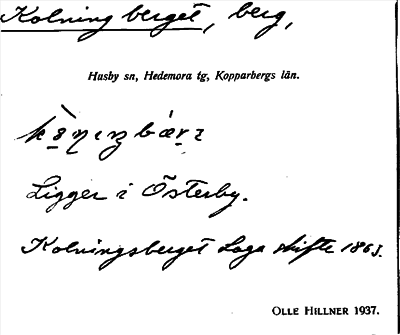 Kolningberget, berg,
Husby sn, Hedemora tg, Kopparbergs län.
Ligger i Österby.
Kolningsberget Laga skifte 1863.
OLLE HILLNER 1937.